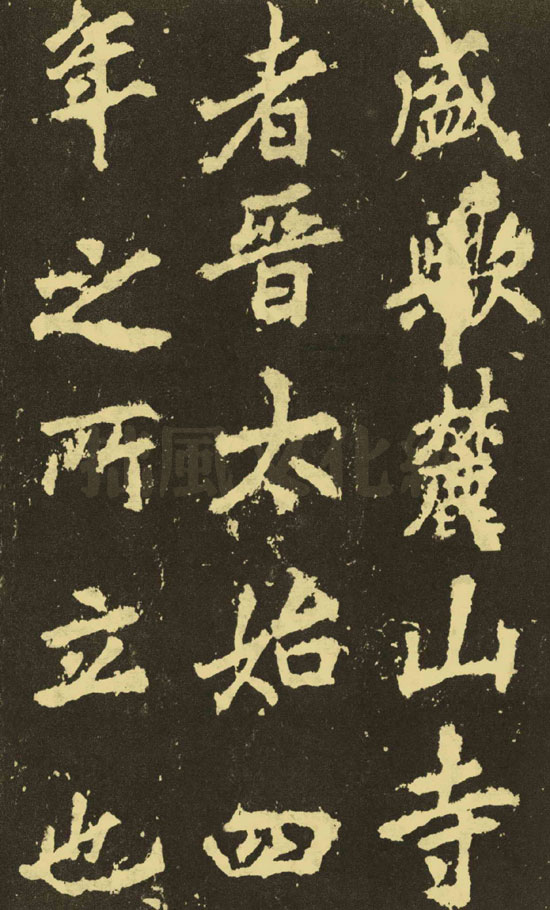 盛歟麓山寺
者晉太始四
年之所立也
風文化